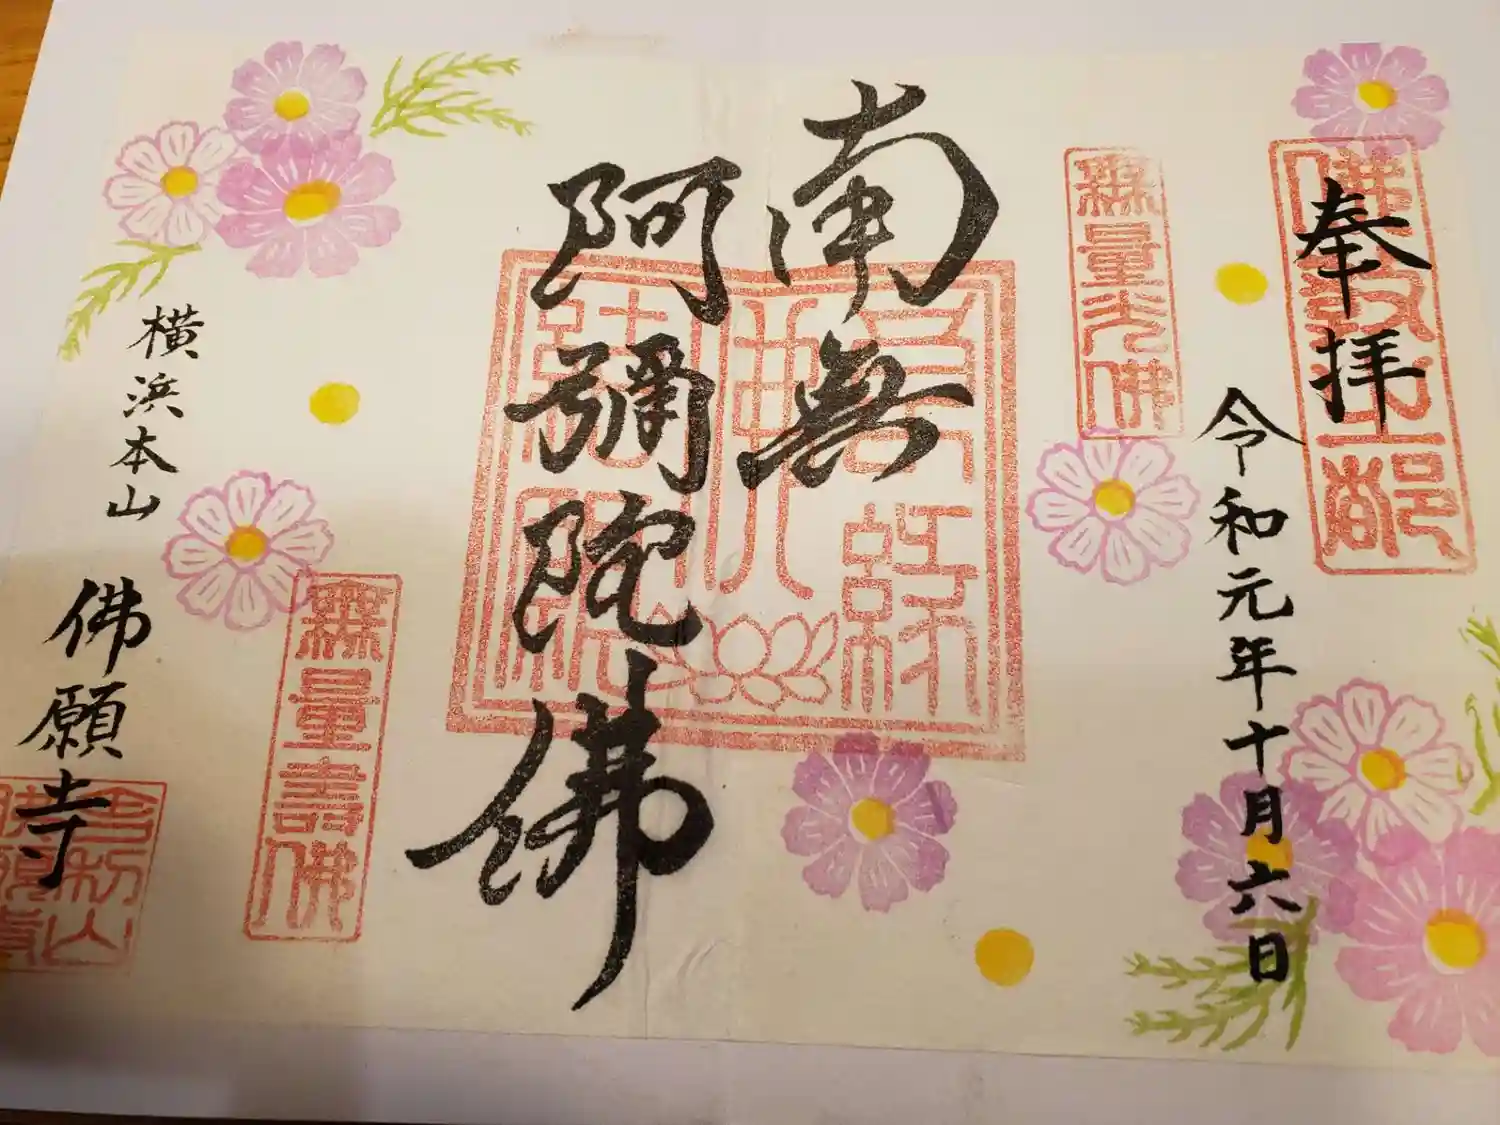 奉拝
令和元年十月六日
無量光佛
南無
阿彌陀佛
無量壽佛
横浜本山
佛願寺